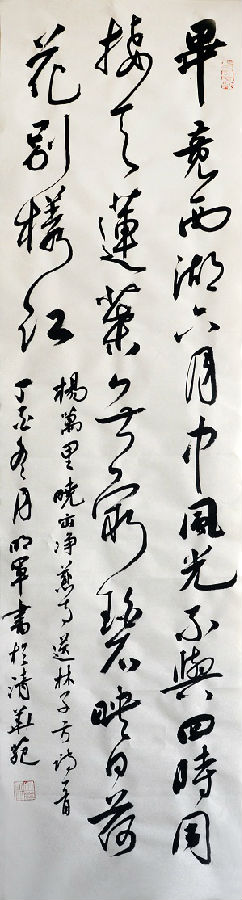 畢竟西湖六月中風光不與四時同
接天蓮葉無窮碧映日荷
花別樣紅
楊萬里曉出淨慈寺送林子方詩一首
丁酉冬月明軍書於清華苑